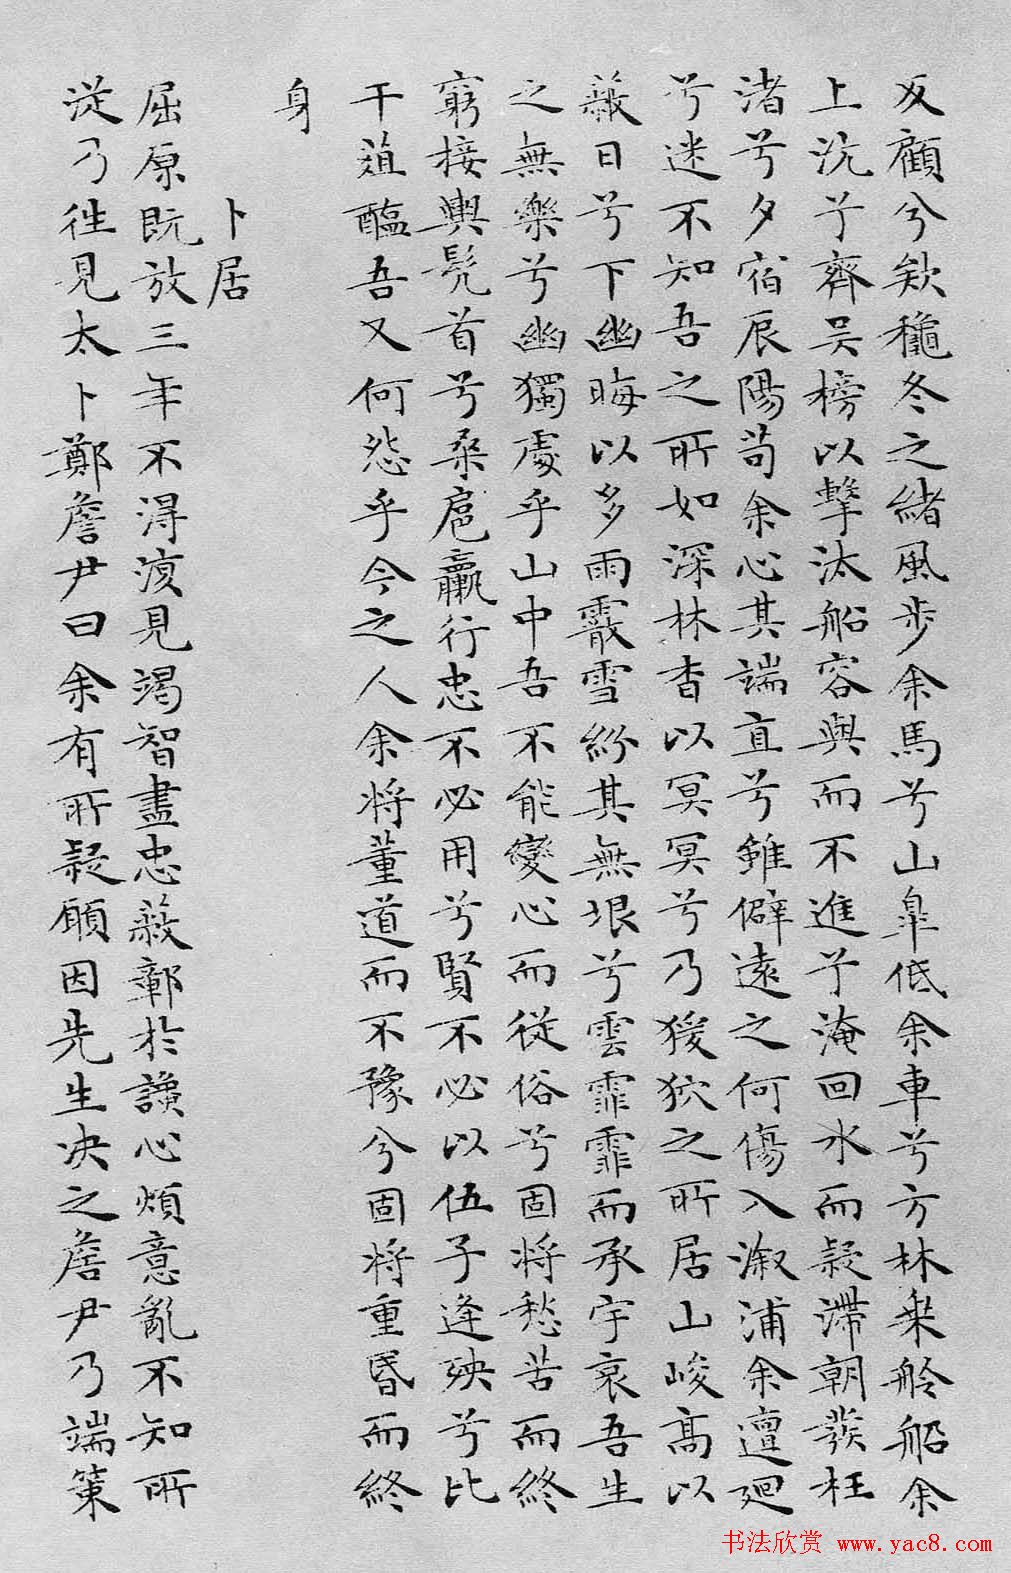 反顧兮欸穐冬之緒風步余馬兮山皐低余車兮方林椉舲船余
上沅兮齊吳榜以擊汰船容與而不進兮淹回水而疑滯朝發枉
渚兮夕宿辰陽苟余心其端直兮雖僻遠之何傷入溆浦余邅廻
兮迷不知吾之所如深林杳以冥冥兮乃猨狖之所居山峻高以
蔽日兮下幽晦以多雨霰雪紛其無垠兮雲霏霏而承宇哀吾生
之無樂兮幽獨處乎山中吾不能變心而從俗兮固將愁苦而終
窮接輿髡首兮桑扈臝行忠不必用兮賢不必以伍子逢殃兮比
干菹醢吾又何怨乎今之人余將董道而不豫兮固將重昏而終
身
卜居
屈原既放三年不得復見竭智盡忠蔽鄣於讒心煩意亂不知所
從乃往見太卜鄭詹尹曰余有所疑願因先生决之詹尹乃端策
书法欣赏 www.yac8.com